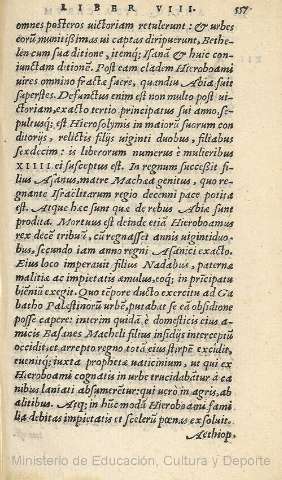 LIBER VIII. 557
omnes posteros uictoriam retulerunt : & urbes
eorū munitissimas ui captas diripuerunt, Bethe-
len cum sua ditione, itemq; Isanā & huic con-
iunctam ditionē. Post eam cladem Hieroboami
uires omnino fractæ fuere, quandiu Abia fuit
superstes. Defunctus enim est non multo post ui-
ctoriam, exacto tertio principatus sui anno, se-
pultusq; est Hierosolymis in maiorū suorum con
ditorijs, relictis filijs uiginti duobus, filiabus
sexdecim : is liberorum numerus è mulieribus
XIIII. ei susceptus est. In regnum successit fi-
lius Asanus, matre Machaa genitus, quo re-
gnante Israëlitarum regio decenni pace potita
est. Atque hæc sunt quæ de rebus Abiæ sunt
prodita. Mortuus est deinde etiā Hieroboamus
rex decē tribuū, cū regnasset annis uigintiduo-
bus, secundo iam anno regni Asani exacto.
Eius loco imperauit filius Nadabus, paternæ
malitiæ ac impietatis æmulus, eoq; in prīcipatu
biēniū exegit. Quo tēpore ducto exercitu ad Ga
batho Palæstinorū urbē, putabat se eā obsidione
posse capere: interim quidā è domesticis eius a-
micis Basanes Macheli filius insidijs interceptū
occidit, et arrepto regno totā eius stirpē excidit,
euenitq; iuxta prophetæ uaticinium, ut qui ex
Hieroboami cognatis in urbe trucidabātur à ca
nibus laniati absumerētur: qui uero in agris, ab
alitibus. Atq; in hūc modū Hieroboami fami
lia debitas impietatis et scelerū pœnas exsoluit.
Aethiop.
Ministerio de Educación, Cultura y Deporte